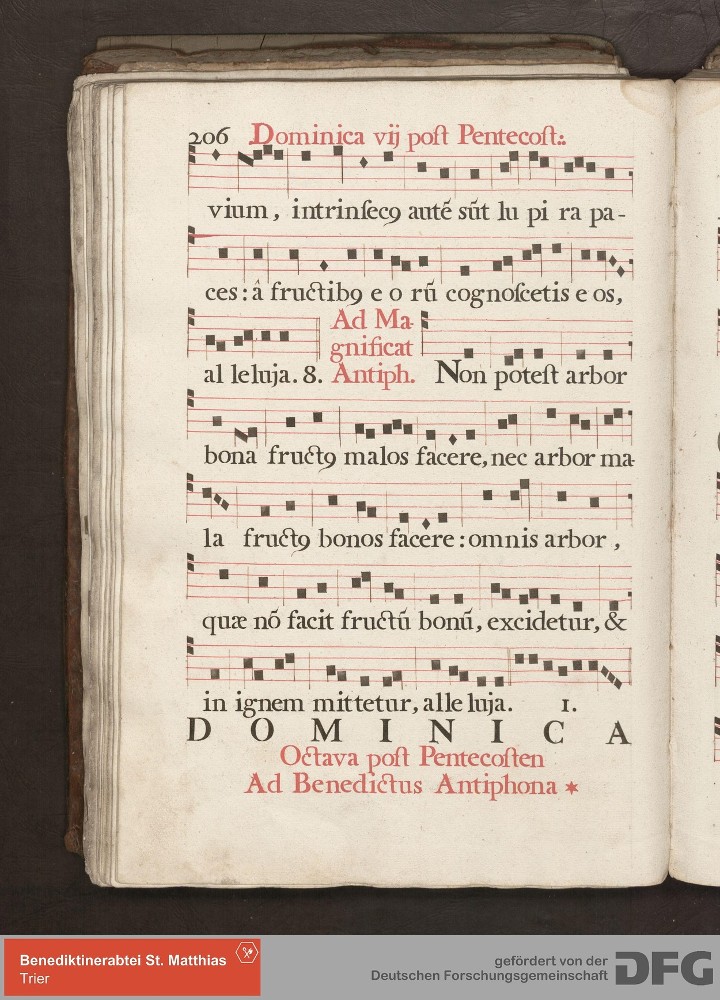 206 Dominica vij poſt Pentecoſt.:
vium, intrinſecꝯ autē sūt lu pi ra pa-
ces: â fructibꝯ e o rū cognoſcetis e os,
al leluja. 8.
Ad Ma-
gnificat
Antiph.
Non poteſt arbor
bona fructꝯ malos facere, nec arbor ma-
la fructꝯ bonos facere: omnis arbor,
quæ nō facit fructū bonū, excidetur, &
in ignem mittetur, alle luja. 1.
DOMINICA
Octava poſt Pentecoſten
Ad Benedictus Antiphona *
Benediktinerabtei St. Matthias
Trier
gefördert von der
Deutschen Forschungsgemeinschaft
DFG